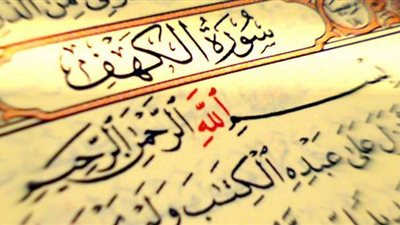 سُورَةُ الكَهْفِ
بِسْمِ ٱللَّهِ ٱلرَّحْمَٰنِ ٱلرَّحِيمِ
عَلَىٰ عَبْدِهِ ٱلْكِتَٰبَ وَلَمْ